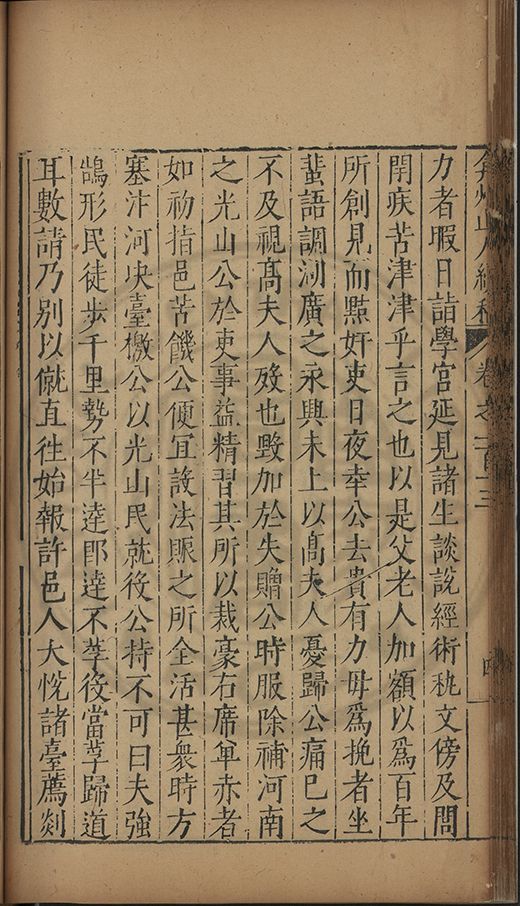 弇州山人續稿 卷之一百十三 四
力者暇日詣學宮延見諸生談說經術秇文傍及閭
閈疾苦津津乎言之也以是父老人加額以爲百年
所創見而黠奸吏日夜幸公去貴有力毋爲挽者坐
蜚語調湖廣之永興未上以髙夫人憂歸公痛巳之
不及視髙夫人歿也毀加於失贈公時服除補河南
之光山公於吏事益精習其所以裁豪右席軍赤者
如初指邑苦饑公便宜設法賑之所全活甚衆時方
塞汴河决臺檄公以光山民就役公持不可曰夫強
鵠形民徒步千里勢不半逹即逹不莩役當莩歸道
耳數請乃别以僦直徃始報許邑人大悅諸臺薦剡